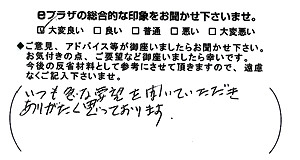 eプラザの総合的な印象をお聞かせ下さいませ。
☑大変良い □良い □普通 □悪い □大変悪い
◆ご意見、アドバイス等が御座いましたらお聞かせ下さい。
お気付きの点、ご要望など御座いましたら幸いです。
今後の反省材料として参考にさせて頂きますので、遠慮
なくご記入下さいませ。
いつも急な要望をきいていただき
ありがたく思っております。